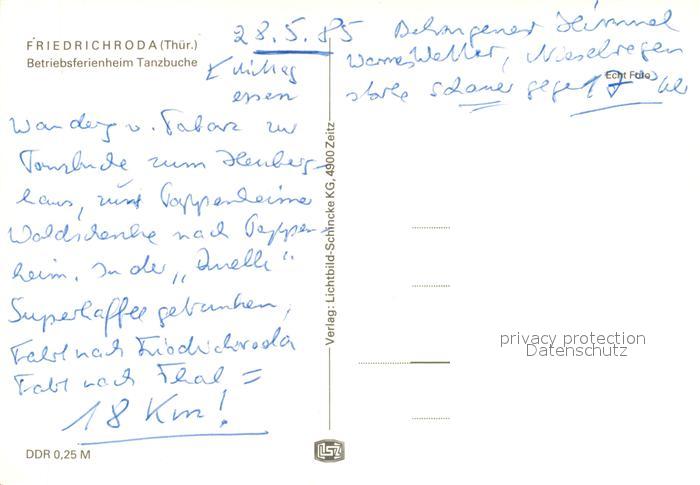 FRIEDRICHRODA (Thür.)
Betriebsferienheim Tanzbuche
28.5.85
Mittag
essen
Wanderg v. Tabarz zur
Tanzbuche zum Heuberg-
haus, zur Tappenheimer
Waldschenke nach Tappen-
heim. In der „Quelle"
Superkaffee getrunken,
Fahrt nach Friedrichroda
Fahrt nach Thal =
18 Km!
DDR 0,25 M
Verlag: Lichtbild-Schincke KG, 4900 Zeitz
Behangener Himmel
Warmes Wetter, Nieselregen
starke Schauer gegen 17 00 Uhr
Echt Foto
privacy protection
Datenschutz